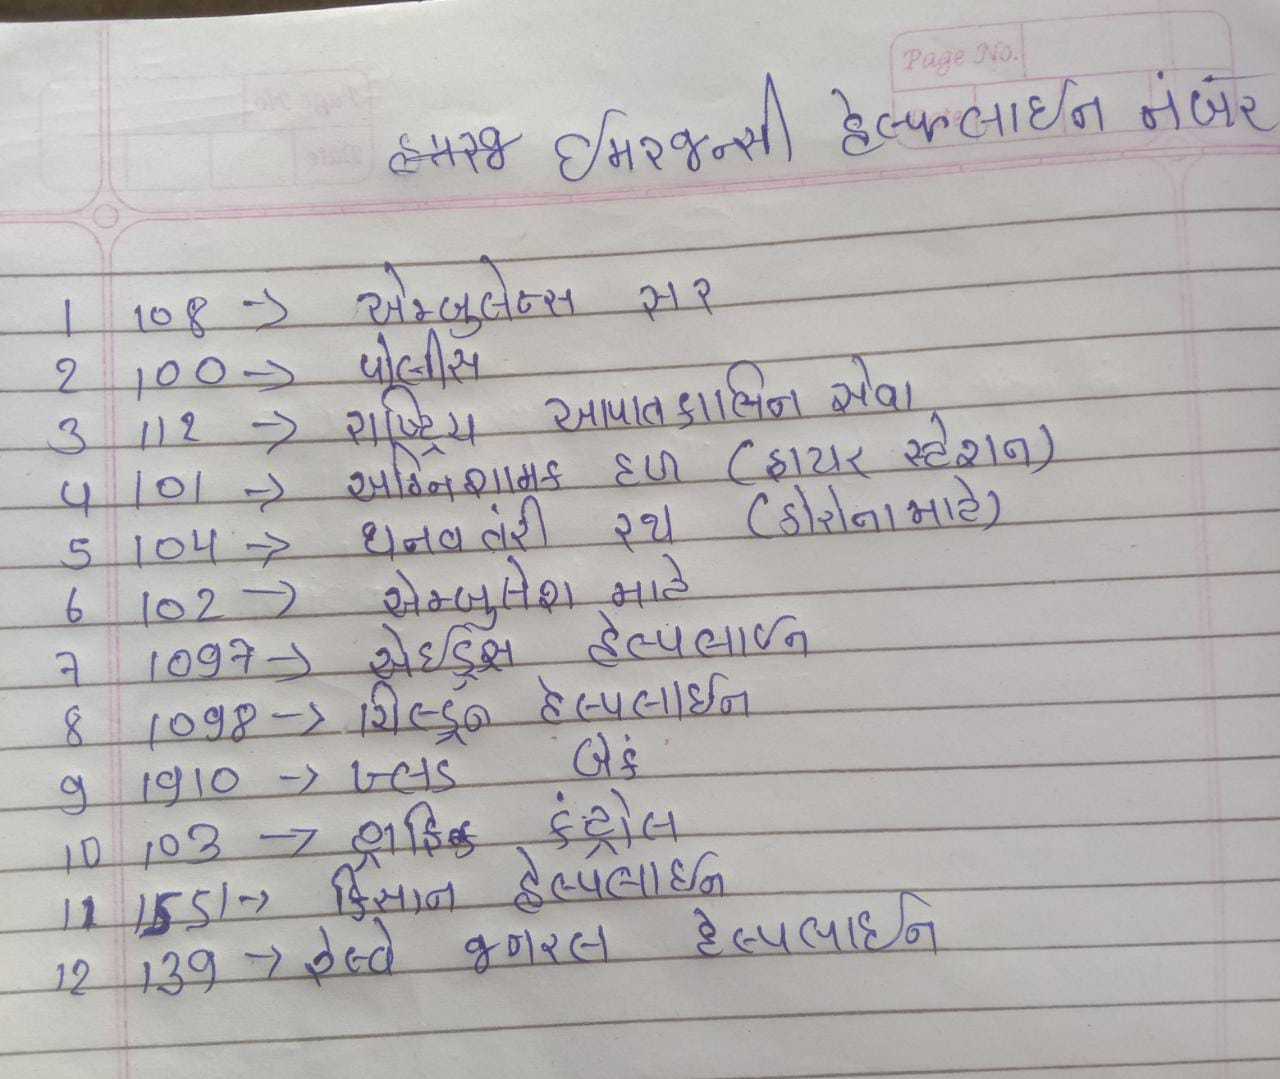 Page No.
ઈમરજન્સી હેલ્પલાઈન નંબર
1 108 → એમ્બુલેન્સ સર
2 100 → પોલીસ
3 112 → રાષ્ટ્રિય આપાતકાલિન સેવા
4 101 → અગ્નિશામક દળ (ફાયર સ્ટેશન)
5 104 → ધનવતંરી રથ (કોરોના માટે)
6 102 → એમ્બુલેશ માટે
7 1097 → એઈડ્રેસ હેલ્પલાઈન
8 1098 → શિલ્ડ્રન હેલ્પલાઈન
9 1910 → બ્લડ બેંક
10 103 → ટ્રાફિક કંટ્રોલ
11 1551 → કિસાન હેલ્પલાઈન
12 139 → રેલ્વે જનરલ હેલ્પલાઈન